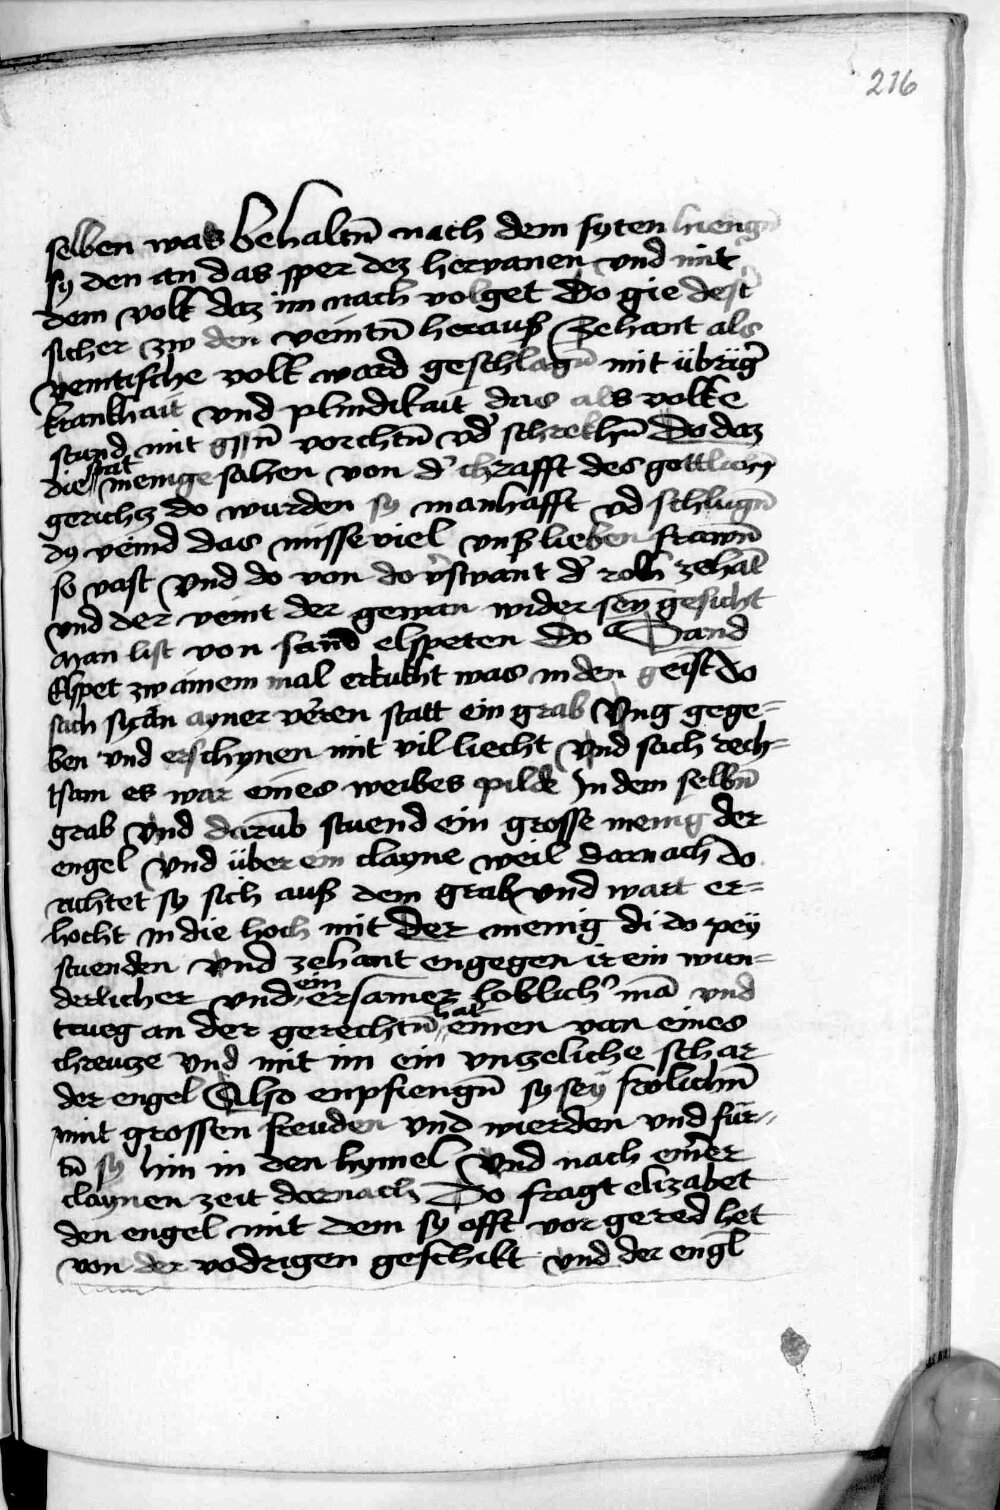 216
selben was behaltn̄ nach dem syten hiengn̄
sy den an das sper dez hervanen vnd mit
dem volk daz im nach volget Do gie dest
sicher zw den veintn̄ herauß Zehant als
veintische volk ward geschlagn̄ mit übrig͛
krankhait vnd plindikait das als volke
stund mit gssn̄ vorchtn̄ vd͛ schrekhn̄ Do daz
die stat menige sahen von d͛ chrafft des gottlichn̄
gerichcz do wurden sy manhafft vd schlugn̄
dy veind das misseviel vnß lieben frawn̄
so vast vnd do von do v͛swant d͛ rokh zehāt
vnd der veint der gewan wider sey̅ gesicht
Man list von sand elspeten Do Sand
Elspet zw ainem mal erkukht was in den geist do
sach sy an ayner v͛ren statt ein grab vmg gege=
ben vnd erschynen mit vil liecht vnd sach rech=
tsam es war eines weibes pilde In dem selbn̄
grab vnd darūb stuend ein grosse menig der
engel vnd über ein clayne weil darnach do
richtet sy sich auß dem grab vnd wart er=
hocht in die hoch mit der menig di do pey
stuenden vnd zehant engegen ir ein wun=
derlicher vnd ein ersamer loblich͛ mā vnd
trueg an der gerechtn̄ hāt einen van eines
chreucze vnd mit im ein vnczeliche schar
der engel Also enpfiengn̄ sy sey frölichn̄
mit grossen freuden vnd wierden vnd für=
tn̄ sy hin in den hymel vnd nach ein͛er
claynen zeit darnach Do fragt elizabet
den engel mit dem sy offt vor gered het
von der vodrigen geschikt vnd der engl̄